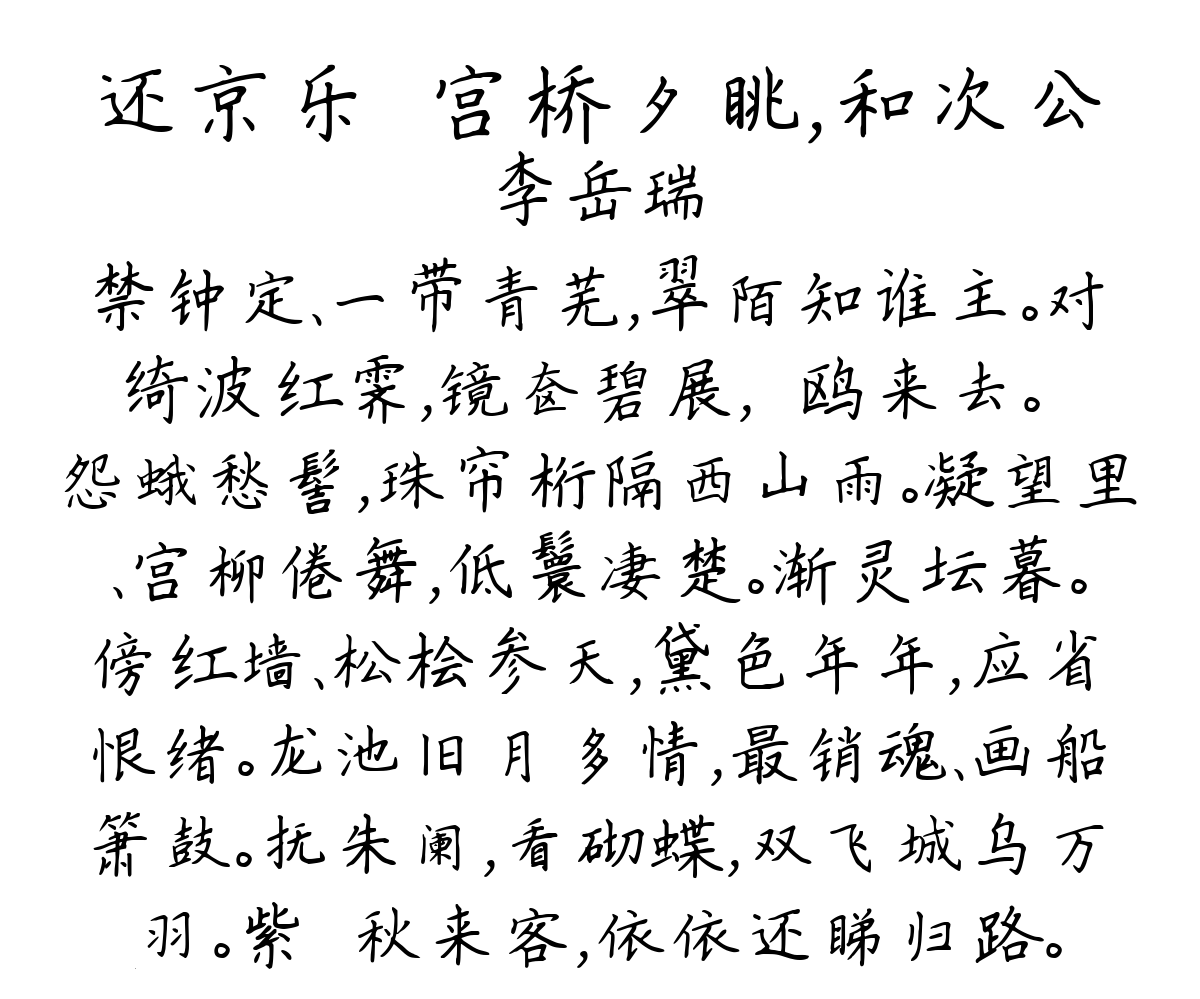 还京乐 宫桥夕眺,和次公
李岳瑞
禁钟定、一带青芜,翠陌知谁主。对
绮波红霁,镜奁碧展, 鸥来去。
怨蛾愁髻,珠帘桁隔西山雨。凝望里
、宫柳倦舞,低鬟凄楚。渐灵坛暮。
傍红墙、松桧参天,黛色年年,应省
恨绪。龙池旧月多情,最销魂、画船
箫鼓。抚朱阑,看砌蝶,双飞城乌万
羽。紫 秋来客,依依还睇归路。